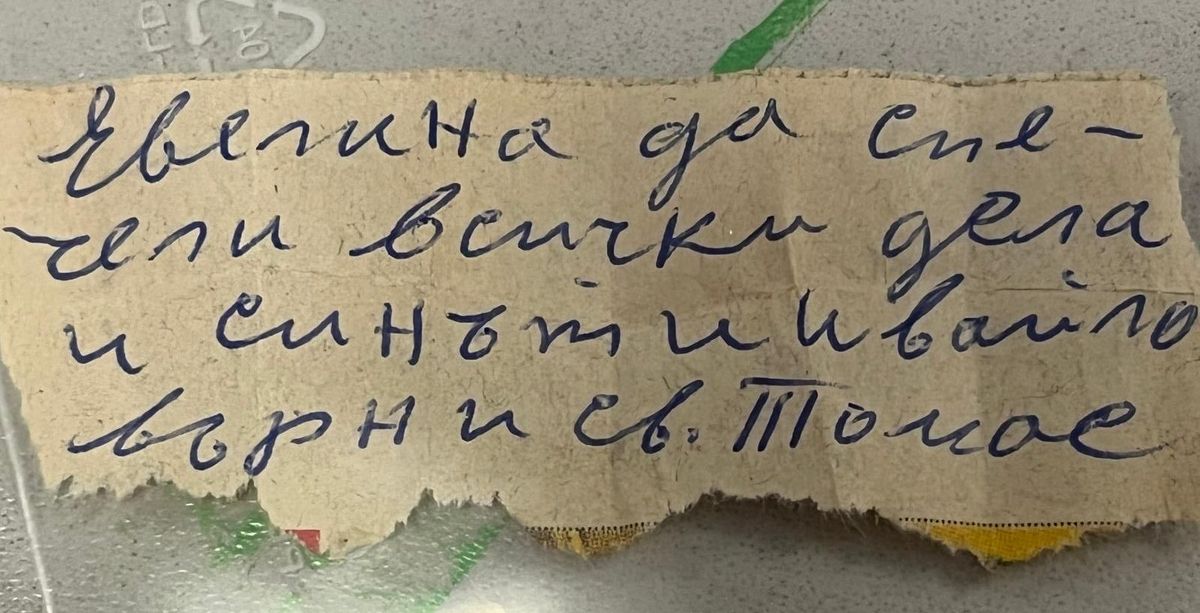 Евелина да спе-
чели всички дела
и синът и Ивайло
върни св. Томас